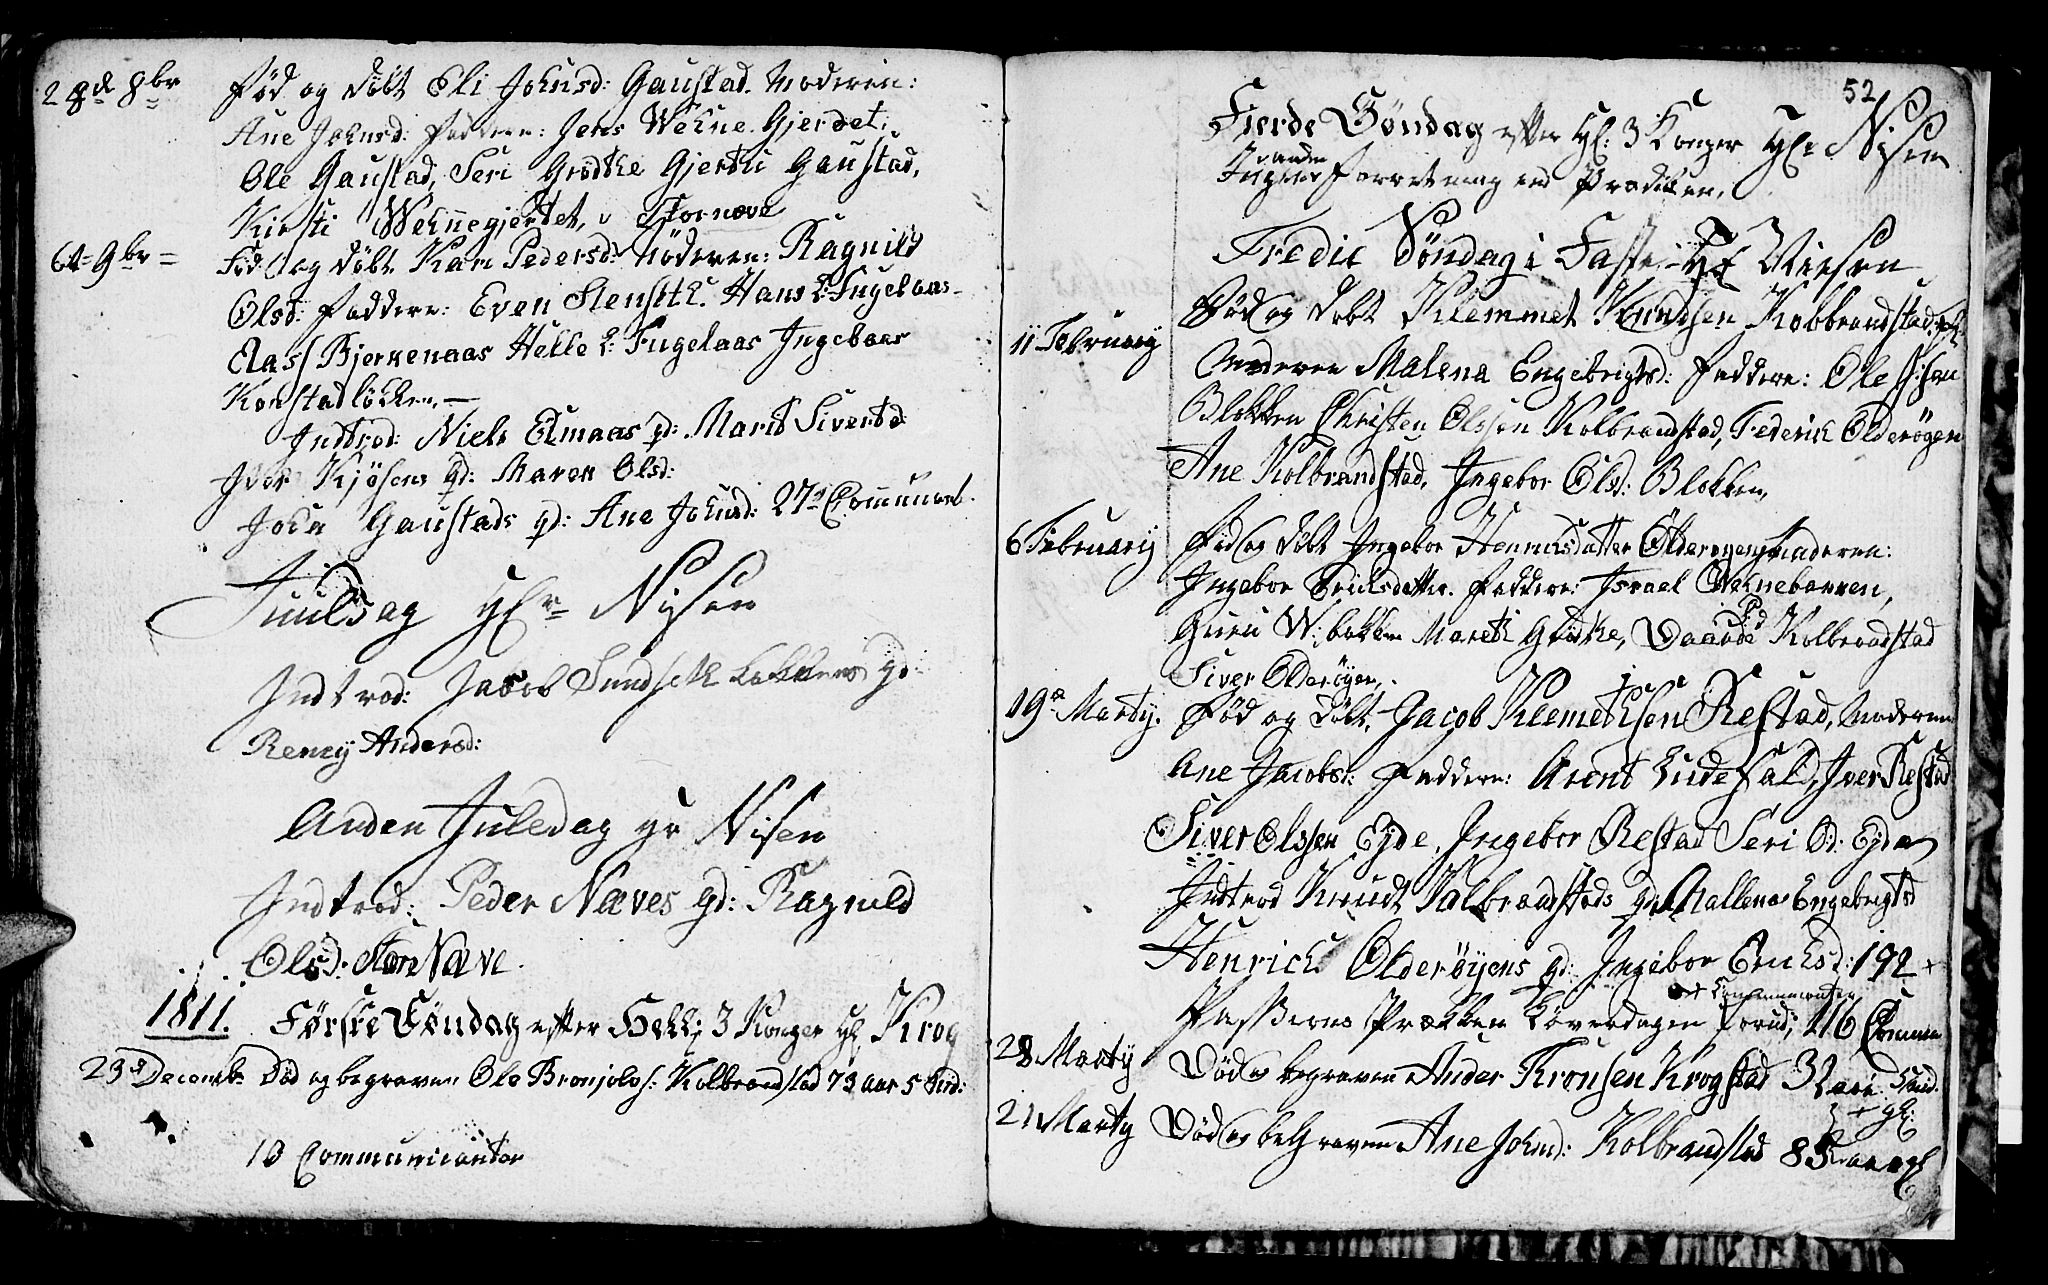 28d 8br Fød og døbt Eli Johnsd: Gaustad. Moderen:
Ane Johnsd: Faddere: Jens Wehne Gjerdet,
Ole Gaustad, Seri Grødthe Gjertru Gaustad,
Kirsti Wehnegjerdet, Stornæve
6t 9br Fød og døbt Kari Pedersd: Moderen: Ragnild
Olsd: Faddere: Even Stensetl: Hans L: Fugelaas
Claas Bjerkenaas Helle L: Fugelaas Ingebaar
Konstadløkken. —
Indtrod: Niels Elmaas qd: Marit Sivertsd
Iver Kjøsens qd: Maren Olsd:
John Gaustads qd: Ane Johnsd: 27 Communicat.
Juulsdag Hr Nisen
Indtrod: Jacob Sundsetl Løkkens qd:
Andersd:
Anden Juledag Hr Nisen
Indtrod: Peder Næves qd: Ragnild
Olsd: Store Næve.
1811. Første Søndag efter Hell: 3 Konger Hr Krog
23d Decemb: Død og begraven Ole Kolbrandstad 73 aar 5 Sind:
10 Communicanter
52
Fierde Søndag efter Hl: 3 Konger Hr: Nisen
Ingen anden Forretning end Prædiken.
Tredie Søndag i Faste Hr Nissen
11 February Fød og døbt Klemmet Knudsen Kolbrandstad
Moderen Malena Engebrigtsd: Faddere: Ole
Blokken Christen Olssen Kolbrandstad, Federik Olderøgen
Ane Kolbrandstad, Ingebor Olsd: Blokken,
6 February Fød og døbt Ingebor Henricksdatter Olderøyen Moderen:
Ingebor Ericksdatter. Faddere: Israel Wehnebakken,
Guru W: bakken Mareth Grødthe, Kolbrandstad
Siver Olderøyen.
19d Marty. Fød og døbt Jacob Klemetsen Restad, Moderen
Ane Jacobsd: Faddere: Arent Ludefald, Iver Restad
Siver Olssen Eyde, Ingebor Restad Seri Od: Eyde
Indtrod Knudt Kolbrandstads qd: Mallena Engebrigtsd
Henrick Olderøyens qd: Ingebor Ericksd: 192 +
+ Communicanter
Passions Prækken Løverdagen forud; 116 Commun
28 Marty Død og begraven Ander Kronsen Krogstad 3
21 Marty Død og begraven Ane Johnsd: Kolbrandstad 85 aar gl